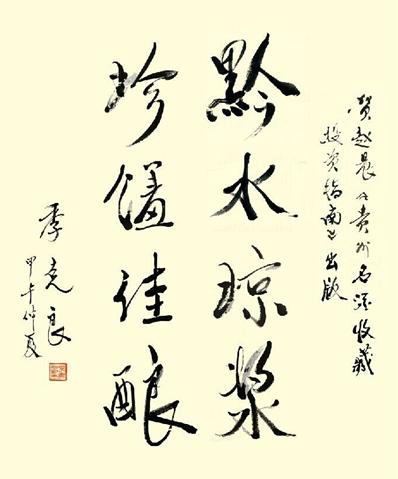 贺赵晨《贵州名酒收藏
投资指南》出版
黔水琼浆
珍馐佳酿
季克良
甲午仲夏